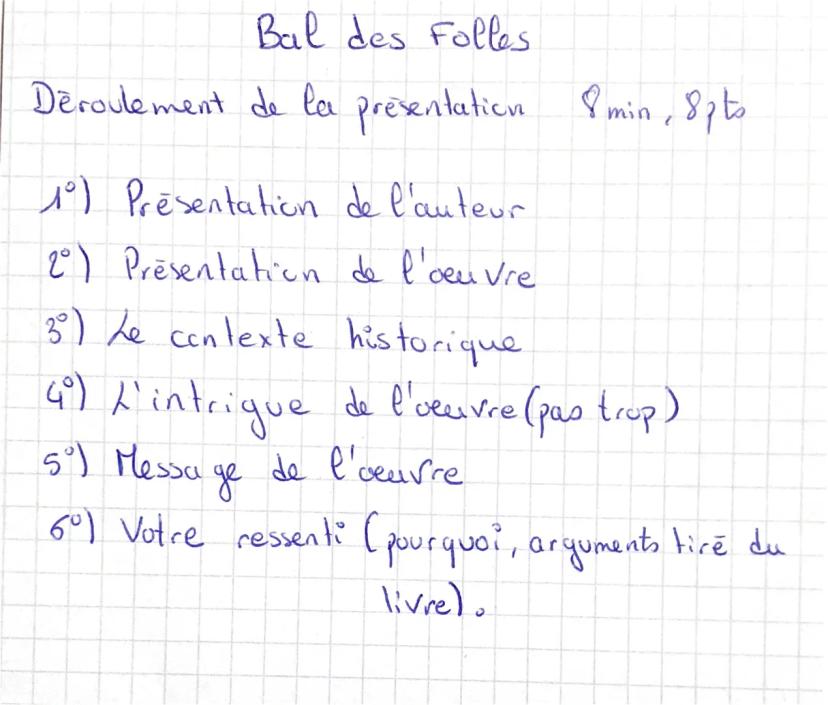 Bal des Folles
Déroulement de la présentation 8 min, 8pts
1°) Présentation de l'auteur
2°) Présentation de l'oeuvre
3°) Le contexte historique
4°) L'intrigue de l'oeuvre (pas trop)
5°) Message de l'oeuvre
6°) Votre ressenti (pourquoi, arguments tiré du
livre).